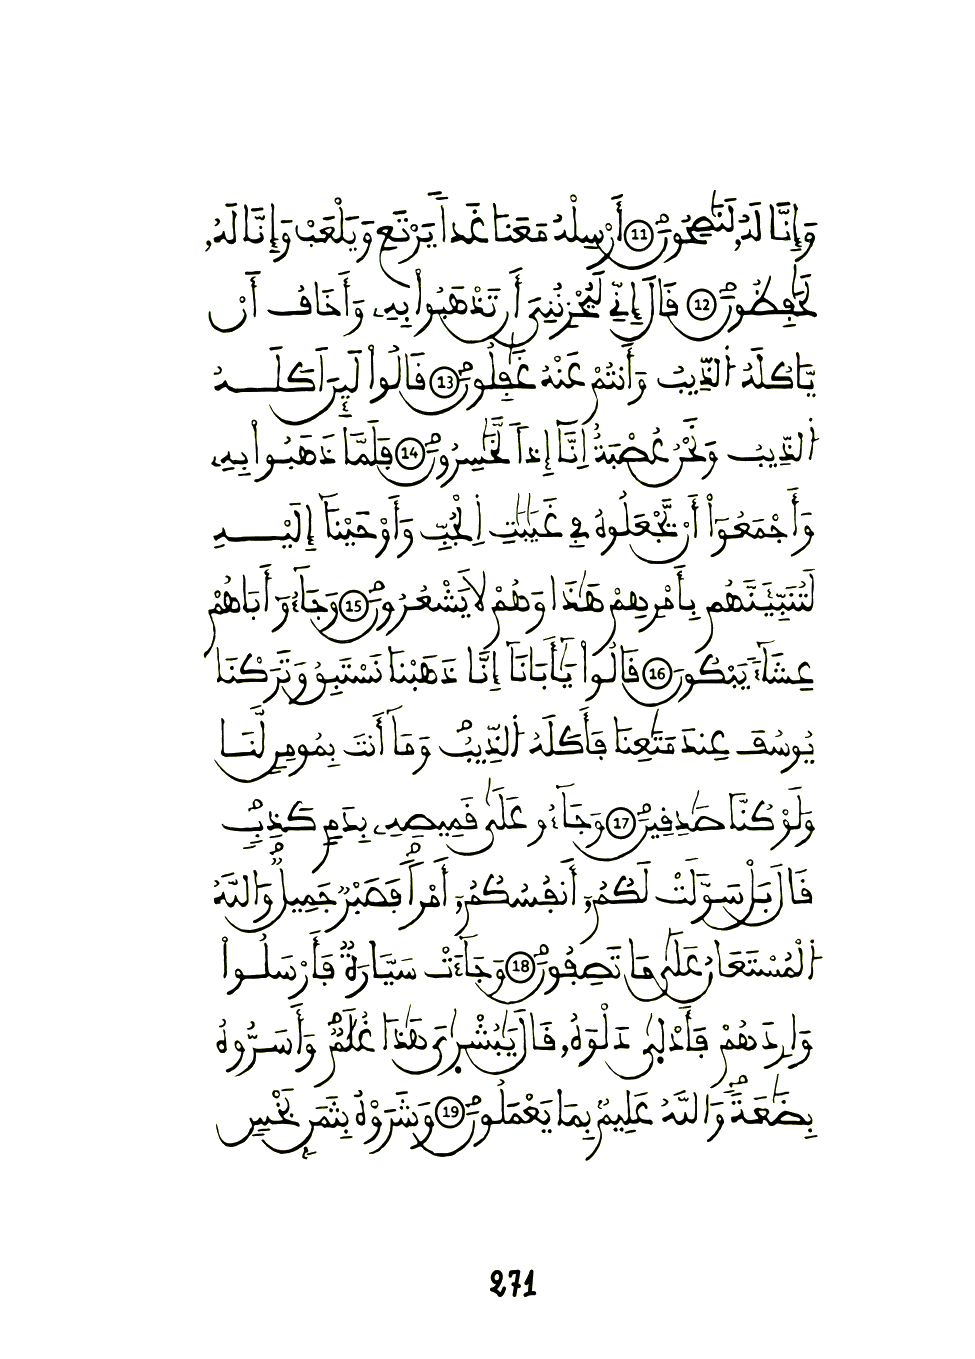 وَإِنَّا لَهُۥ لَنَٰصِحُونَ 11 أَرْسِلْهُ مَعَنَا غَداٗ يَرْتَعِ وَيَلْعَبْ وَإِنَّا لَهُۥ
لَحَٰفِظُونَ 12 قَالَ إِنِّي لَيُحْزِنُنِيَ أَن تَذْهَبُواْ بِهِۦ وَأَخَافُ أَنْ
يَّاكُلَهُ اُ۬لذِّيبُ وَأَنتُمْ عَنْهُ غَٰفِلُونَ 13 قَالُواْ لَئِنَ اَكَلَهُ
اُ۬لذِّيبُ وَنَحْنُ عُصْبَةٌ اِنَّآ إِذاٗ لَّخَٰسِرُونَ 14 فَلَمَّا ذَهَبُواْ بِهِۦ
وَأَجْمَعُوٓاْ أَنْ يَّجْعَلُوهُ فِي غَيَٰبَٰتِ اِ۬لْجُبِّ وَأَوْحَيْنَآ إِلَيْهِ
لَتُنَبِّئَنَّهُم بِأَمْرِهِمْ هَٰذَا وَهُمْ لَا يَشْعُرُونَ 15 وَجَآءُوٓ أَبَاهُمْ
عِشَآءٗ يَبْكُونَ 16 قَالُواْ يَٰٓأَبَانَآ إِنَّا ذَهَبْنَا نَسْتَبِقُ وَتَرَكْنَا
يُوسُفَ عِندَ مَتَٰعِنَا فَأَكَلَهُ اُ۬لذِّيبُ وَمَآ أَنتَ بِمُومِنٖ لَّنَا
وَلَوْ كُنَّا صَٰدِقِينَ 17 وَجَآءُو عَلَىٰ قَمِيصِهِۦ بِدَمٖ كَذِبٖ
قَالَ بَلْ سَوَّلَتْ لَكُمُۥٓ أَنفُسُكُمُۥٓ أَمْراٗ فَصَبْرٞ جَمِيلٞ وَاللَّهُ
اُ۬لْمُسْتَعَانُ عَلَىٰ مَا تَصِفُونَ 18 وَجَآءَتْ سَيَّارَةٞ فَأَرْسَلُواْ
وَارِدَهُمْ فَأَدْلَىٰ دَلْوَهُۥ قَالَ يَٰبُشْر۪ايَ هَٰذَا غُلَٰمٞ وَأَسَرُّوهُ
بِضَٰعَةٗ وَاللَّهُ عَلِيمُۢ بِمَا يَعْمَلُونَ 19 وَشَرَوْهُ بِثَمَنِۢ بَخْسٖ
271